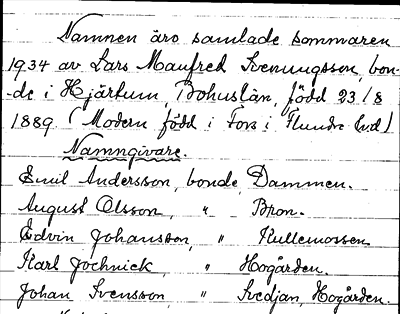 Namnen äro samlade sommaren
1934 av Lars Manfred Svenungsson, bon-
-de i Hjärtum, Bohuslän, född 23/8
1889 (Modern född i Fors i Flundre hvd)
Namngivare.
Emil Andersson, bonde, Dammen.
August Olsson, " Bron.
Edvin Johansson, " Kullemossen
Karl Jochnick, " Hogården.
Johan Svensson, " Svedjan, Hogården.